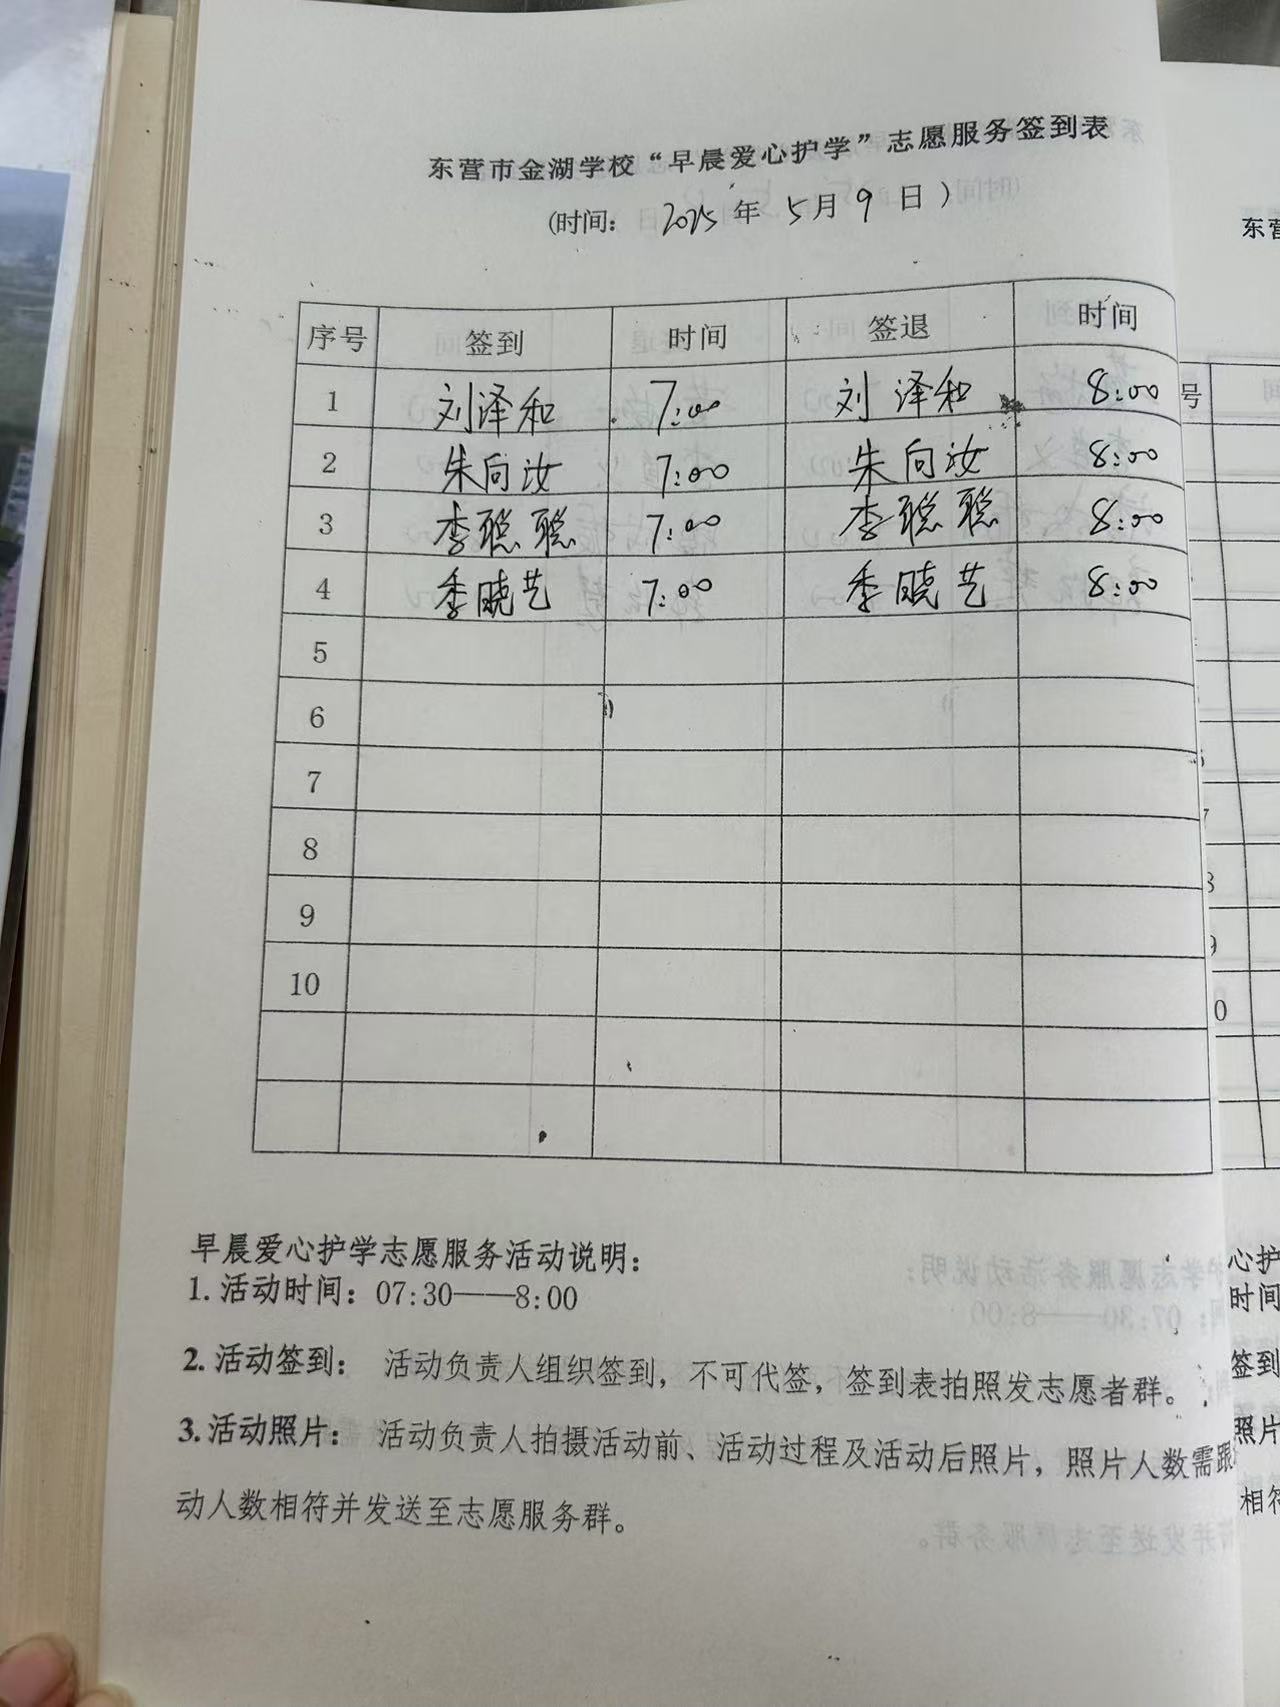 东营市金湖学校“早晨爱心护学”志愿服务签到表
(时间： 2025 年 5 月 9 日 )
序号 签到 时间 签退 时间
1 刘泽和 7:00 刘泽和 8:00
2 朱向汝 7:00 朱向汝 8:00
3 李聪聪 7:00 李聪聪 8:00
4 季晓艺 7:00 季晓艺 8:00
5
6
7
8
9
10
早晨爱心护学志愿服务活动说明：
1. 活动时间：07:30——8:00
2. 活动签到： 活动负责人组织签到，不可代签，签到表拍照发志愿者群。
3. 活动照片： 活动负责人拍摄活动前、活动过程及活动后照片，照片人数需跟
动人数相符并发送至志愿服务群。
东营
号
8
9
0
心护
时间
签到
照片
相符